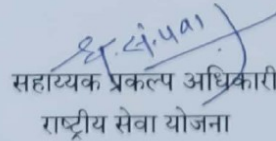 सहाय्यक प्रकल्प अधिकारी
राष्ट्रीय सेवा योजना